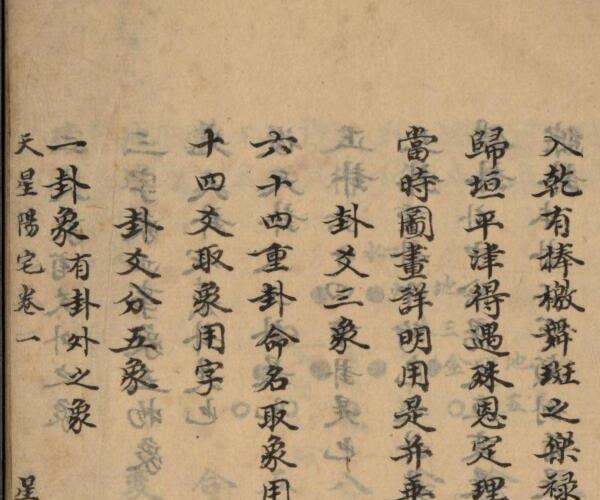 入乾有捧檄舞斑之樂祿
歸垣平津得遇殊恩定理
當時圖畫詳明用是并垂
卦爻三象
六十四重卦命名取象用
十四爻取象用字
卦爻分五象
一卦象有卦外之象
天星陽宅卷一
星